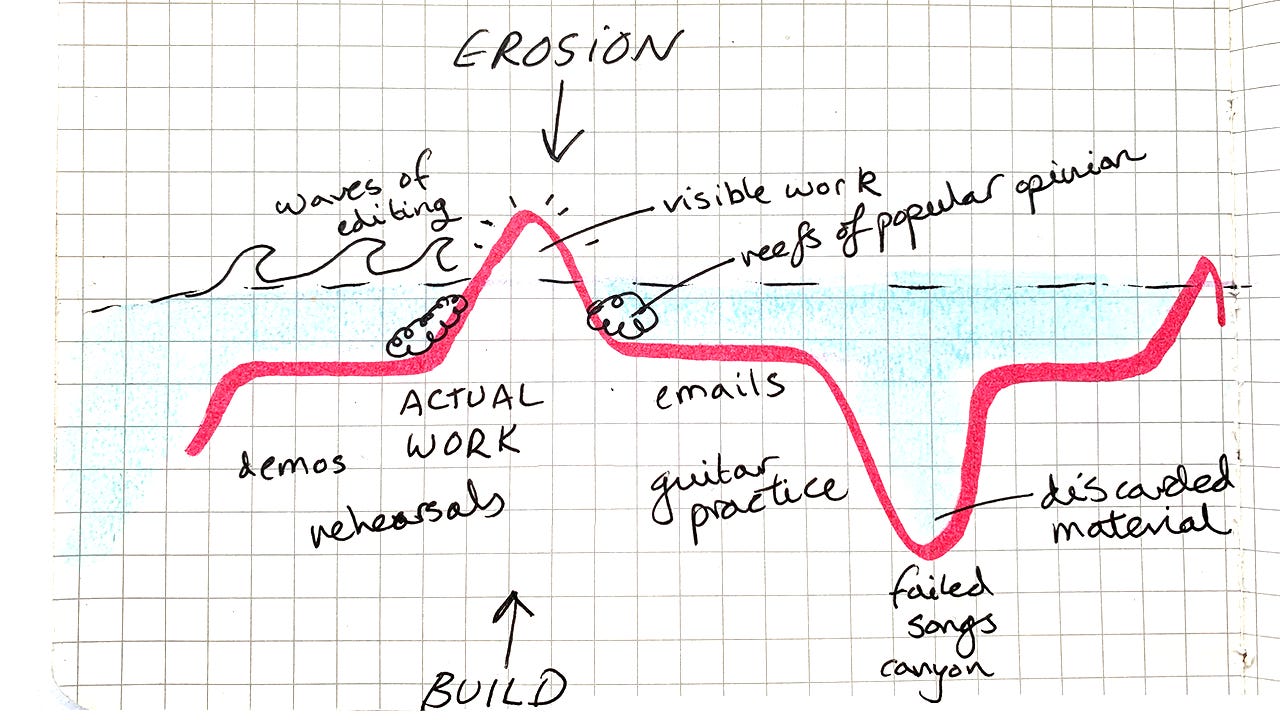 EROSION
waves of
editing
visible work
reefs of popular opinion
ACTUAL
WORK
emails
demos
rehearsals
guitar
practice
discarded
material
failed
songs
canyon
BUILD